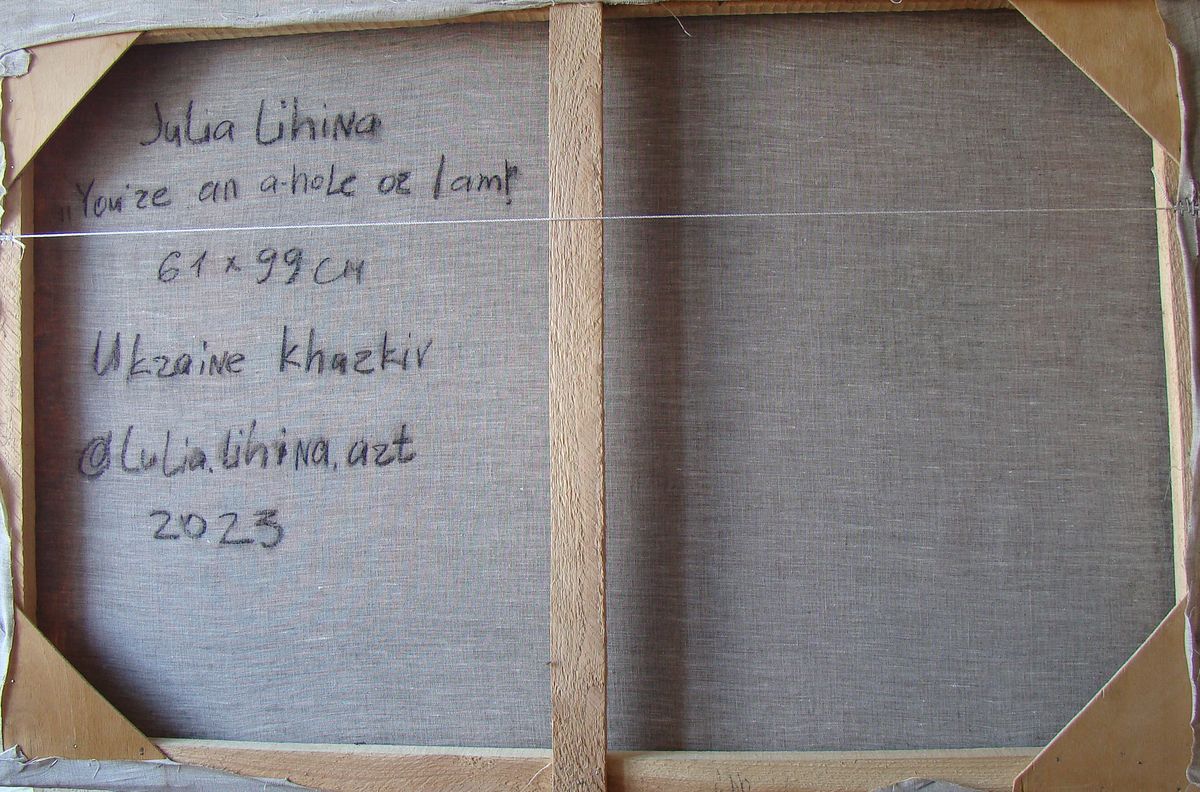 Julia Lihina
„You're an a-hole or
61 x 99 см
Ukraine Kharkiv
@lulia.lihina.art
2023